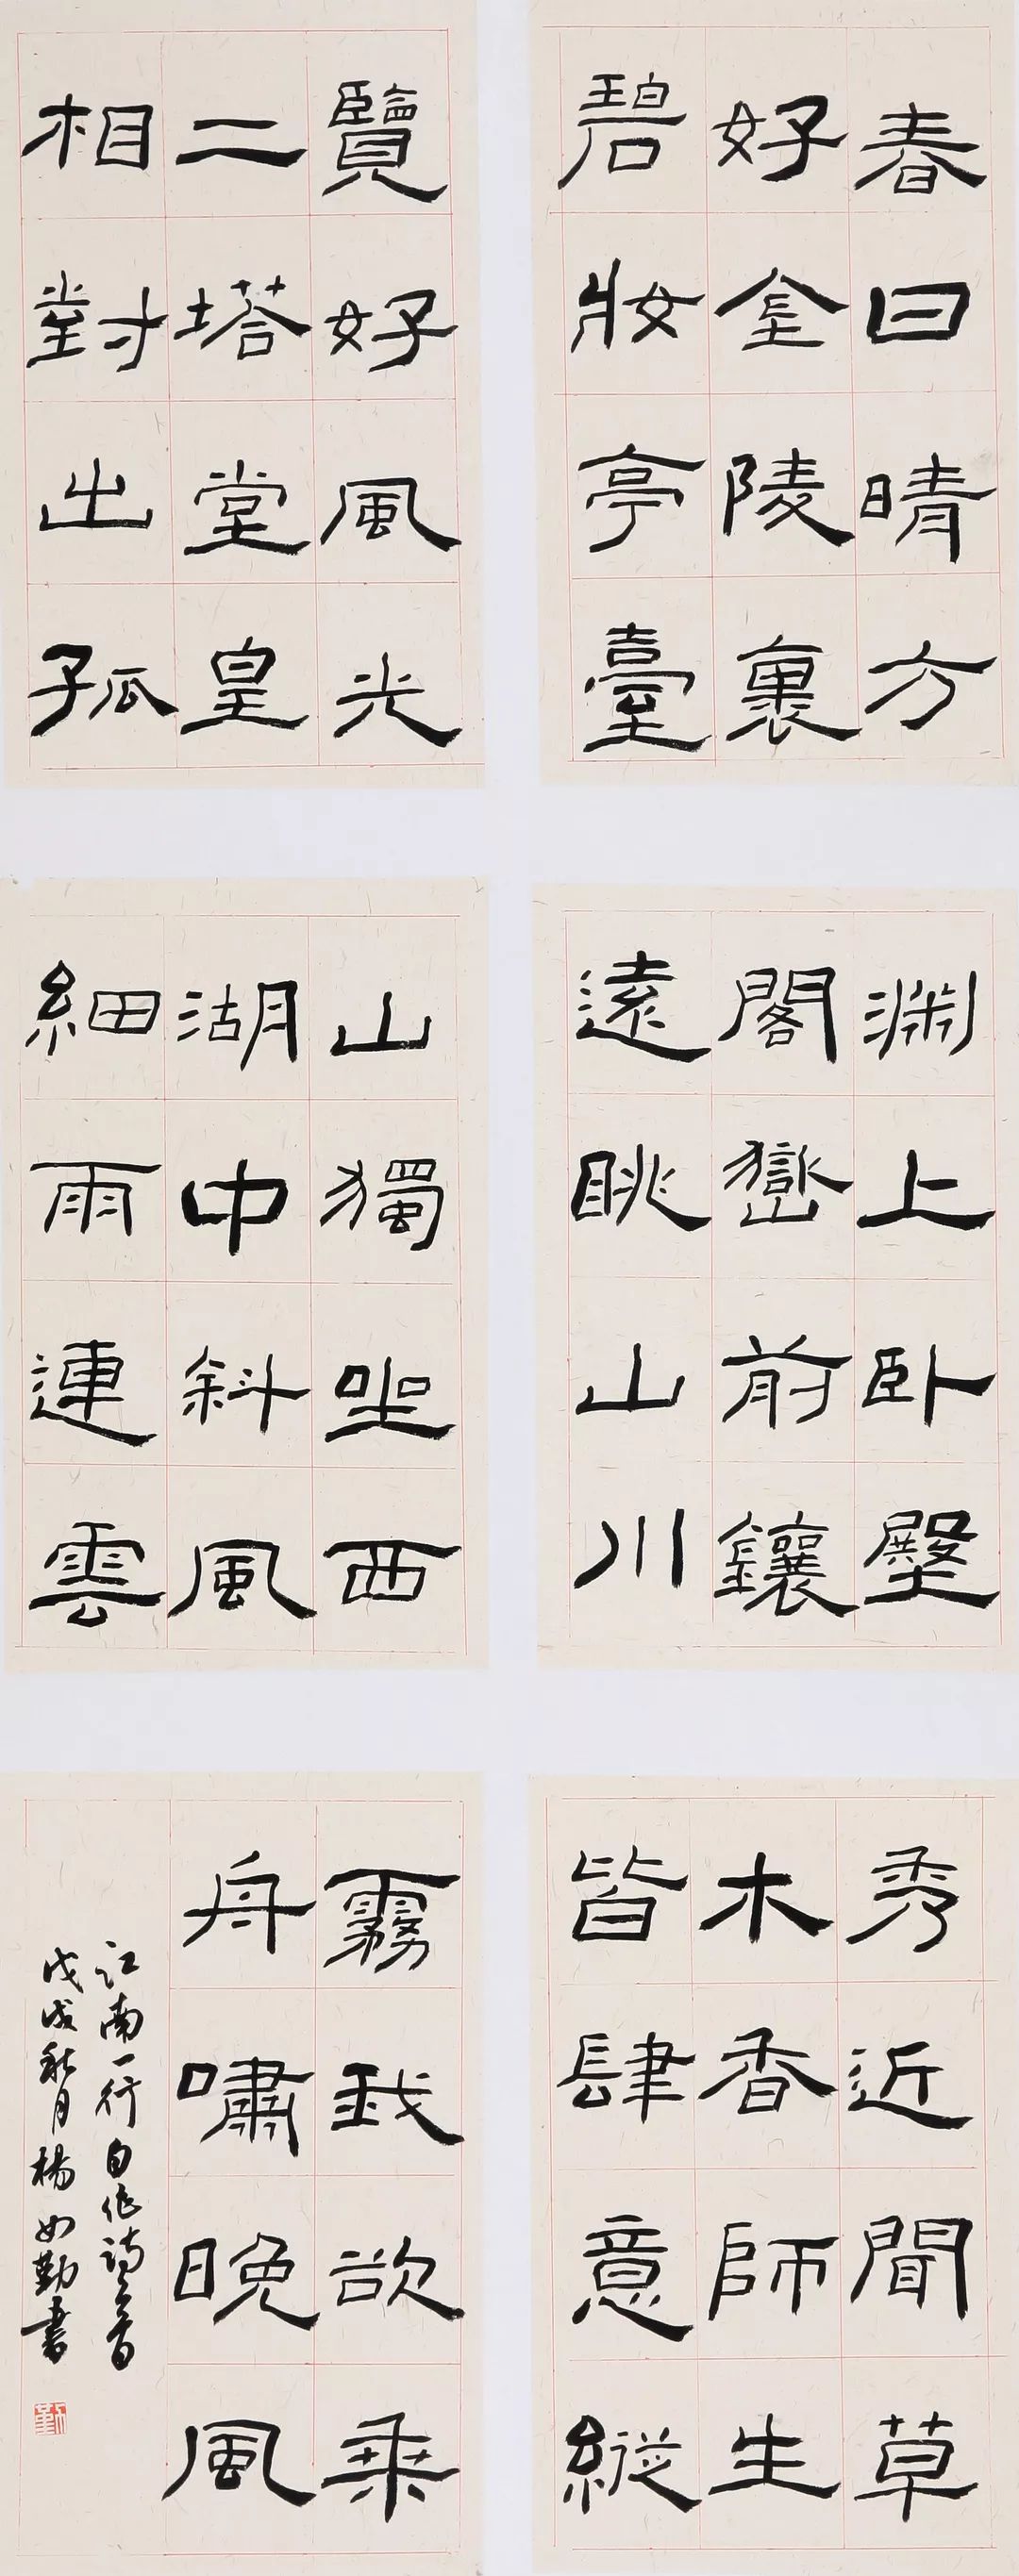 春日晴方
好金陵裏
碧妝亭臺
淵上臥壂
閣巒前鑲
遠眺山川
秀近聞草
木香師生
皆肆意縱
覽好風光
二塔堂皇
相對出孤
山獨坐西
湖中斜風
細雨連雲
霧我欲乘
舟嘯晚風
江南一行自作詩二首
戊戌秋月楊如勤書